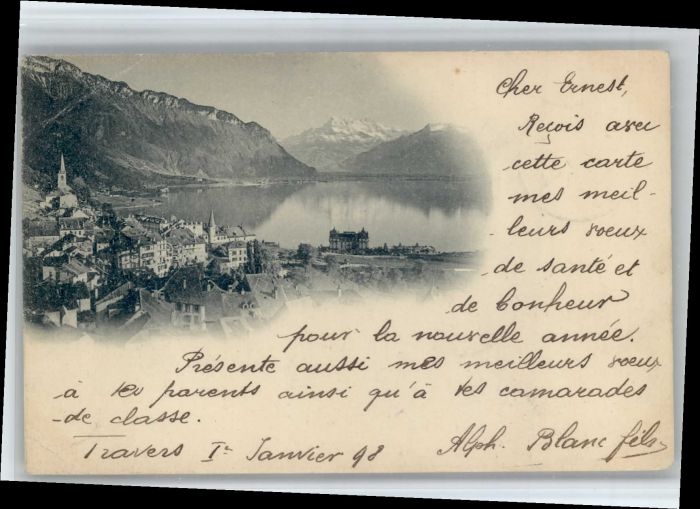 Cher Ernest,
Reçois avec
cette carte
mes meil-
leurs voeux
de santé et
de bonheur
pour la nouvelle année.
Présente aussi mes meilleurs voeux
à tes parents ainsi qu'à tes camarades
de classe.
Travers 1r Janvier 98 Alph. Blanc fils